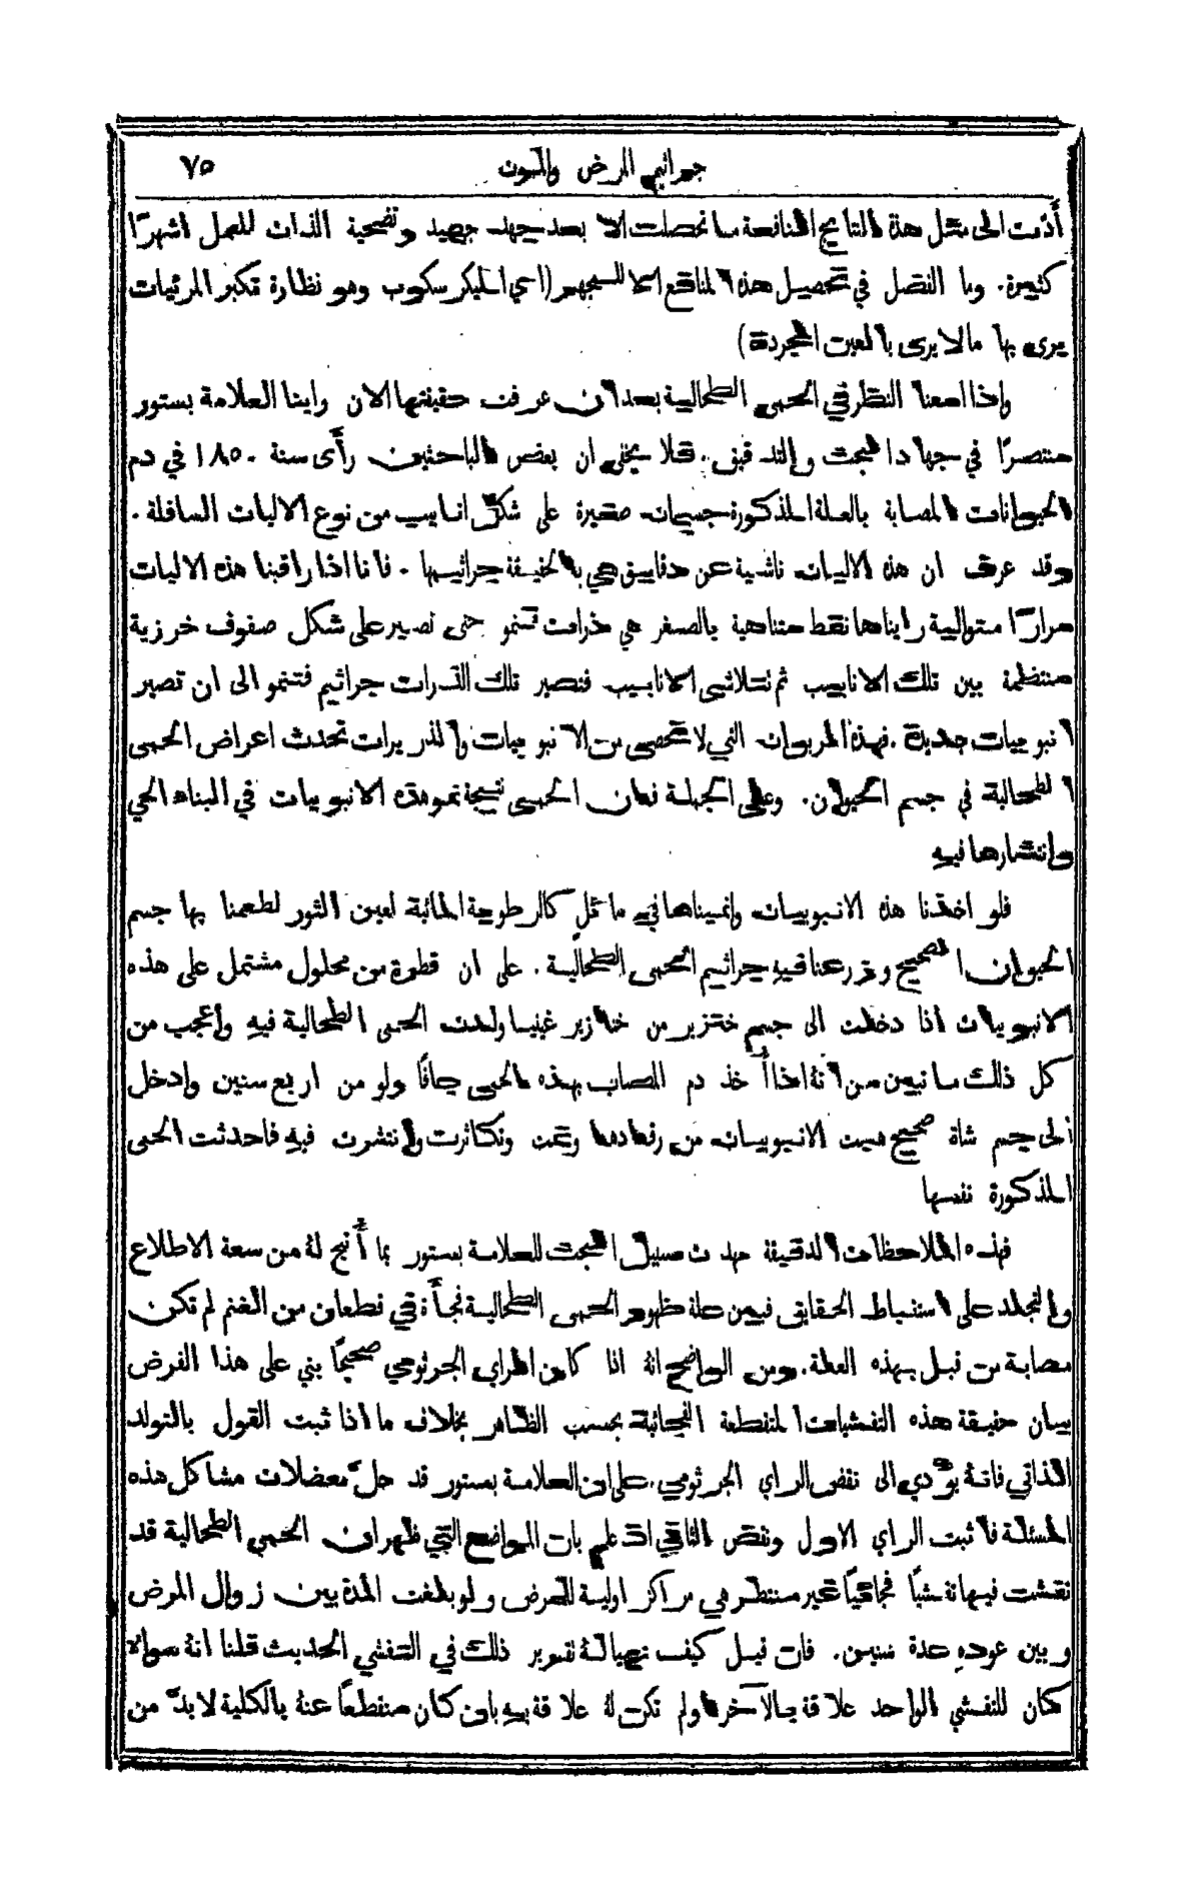 جراثيم المرض والموت ٧٥
أدّت الى مثل هذه النتايج النافعة ما تحصلت الا بعد جهد جهيد وتضحية الذات للعمل اشهرًا
كثيرة. وما الفضل في تحصيل هذه المنافع الا للمجهر (اعني المِيكرسكوب وهو نظارة تكبر المرئيات
يرى بها ما لا يرى بالعين المجردة)
واذا امعنا النظر في الحمى الطحالية بعد ان عرفت حقيقتها الان راينا العلامة بستور
منتصرًا في جهاد البحث والتدقيق. فلا يخفى ان بعض الباحثين رأى سنة ١٨٥٠ في دم
الحيوانات المصابة بالعلة المذكورة جسيمات صغيرة على شكل انابيب من نوع الاليات السافلة.
وقد عرف ان هذه الاليات ناشية عن دقايق هي بالحقيقة جراثيمها. فاننا اذا راقبنا هذه الاليات
مرارًا متوالية رايناها نقط متناهية بالصغر هي ذرات تنمو حتى تصير على شكل صفوف خرزية
منتظمة بين تلك الانابيب ثم تتلاشى الانابيب فتصير تلك الذرات جراثيم فتنمو الى ان تصير
انبوبيات جديدة. فهذه المربوات التي لا تحصى من الانبوبيات والذريرات تحدث اعراض الحمى
الطحالية في جسم الحيوان. وعلى الجملة فان الحمى نتيجة نمو هذه الانبوبيات في البناء الحي
وانتشارها فيه
فلو اخذنا هذه الانبوبيات وانميناها في ماثل كالرطوبة المائية لعين الثور لطعمنا بها جسم
الحيوان الصحيح وزرعنا فيه جراثيم الحمى الطحالية. على ان قطرة من محلول مشتمل على هذه
الانبوبيات اذا دخلت الى جسم خنزير من خنازير غينيا ولدت الحمى الطحالية فيه واعجب من
كل ذلك ما تبين من انهُ اذا أُخذ دم المصاب بهذه الحمى جافًا ولو من اربع سنين وادخل
الى جسم شاة صحيح هبت الانبوبيات من رقادها ونمت وتكاثرت وانتشرت فيه فاحدثت الحمى
المذكورة نفسها
فهذه الملاحظات الدقيقة مهدت سبيل البحث للعلامة بستور بما أُتيح لهُ من سعة الاطلاع
والتجلد على استنباط الحقايق فبين علة ظهور الحمى الطحالية فجأة في قطعان من الغنم لم تكن
مصابة من قبل بهذه العلة. ومن الواضح انهُ اذا كان الراي الجرثومي صحيحًا بني على هذا الفرض
بيان حقيقة هذه التفشيات المنقطعة الفجائية بحسب الظاهر بخلاف ما اذا ثبت القول بالتولد
الذاتي فانهُ يؤدي الى نقض الراي الجرثومي. على ان العلامة بستور قد حلّ معضلات مشاكل هذه
المسئلة فاثبت الراي الاول ونقض الثاني اذ علم بان المواضع التي ظهر ان الحمى الطحالية قد
تفشت فيها تفشيًا فجاءيًا غير منتظر هي مراكز اولية للمرض ولو بلغت المدة بين زوال المرض
وبين عوده عدة سنين. فان قيل كيف تهيا لهُ تقرير ذلك في التفشي الحديث قلنا انهُ سوالا
كان للتفشي الواحد علاقة بالآخر او لم تكن لهُ علاقة به بان كان منقطعًا عنهُ بالكلية لا بدّ من